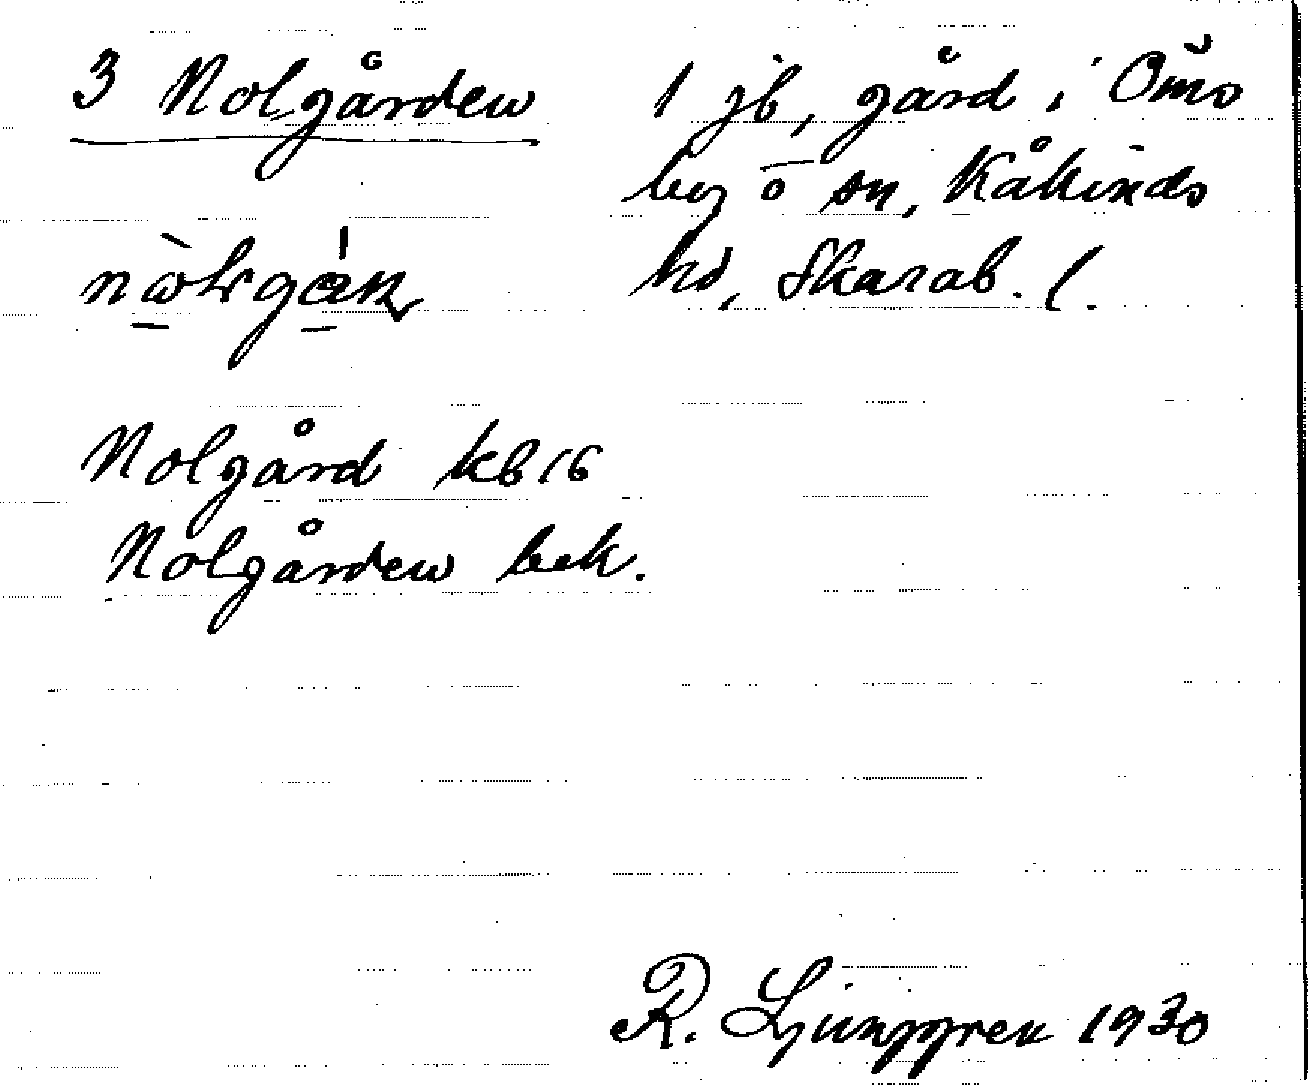 3 Nolgården 1 jb, gård i Ömo
by o sn, Kåkinds
hd, Skarab. l.
Nolgård kb 16
Nolgården bek.
R. Ljunggren 1930